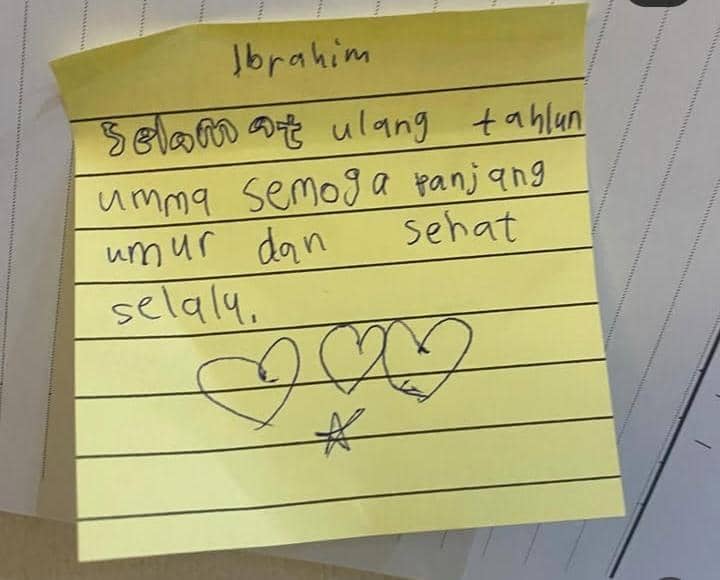 Ibrahim
Selamat ulang tahun
umma semoga panjang
umur dan sehat
selalu.